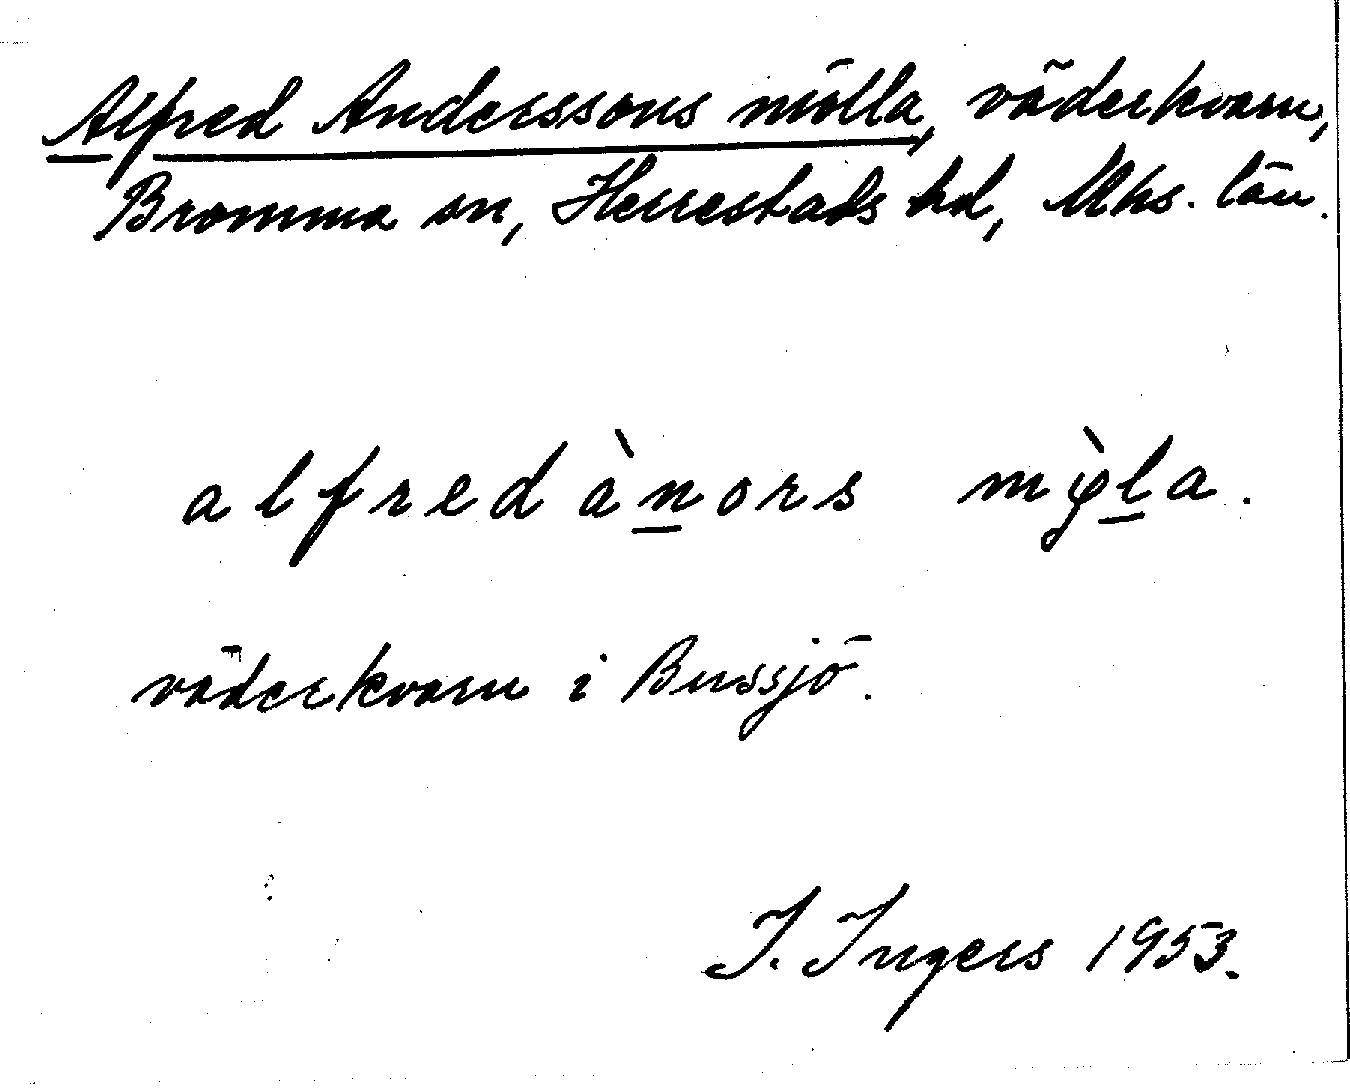 Alfred Anderssons mölla, väderkvarn,
Bromma sn, Herrestads hd, Mhs. län.
alfredànors mỳla.
väderkvarn i Bussjö.
I. Ingers 1953.